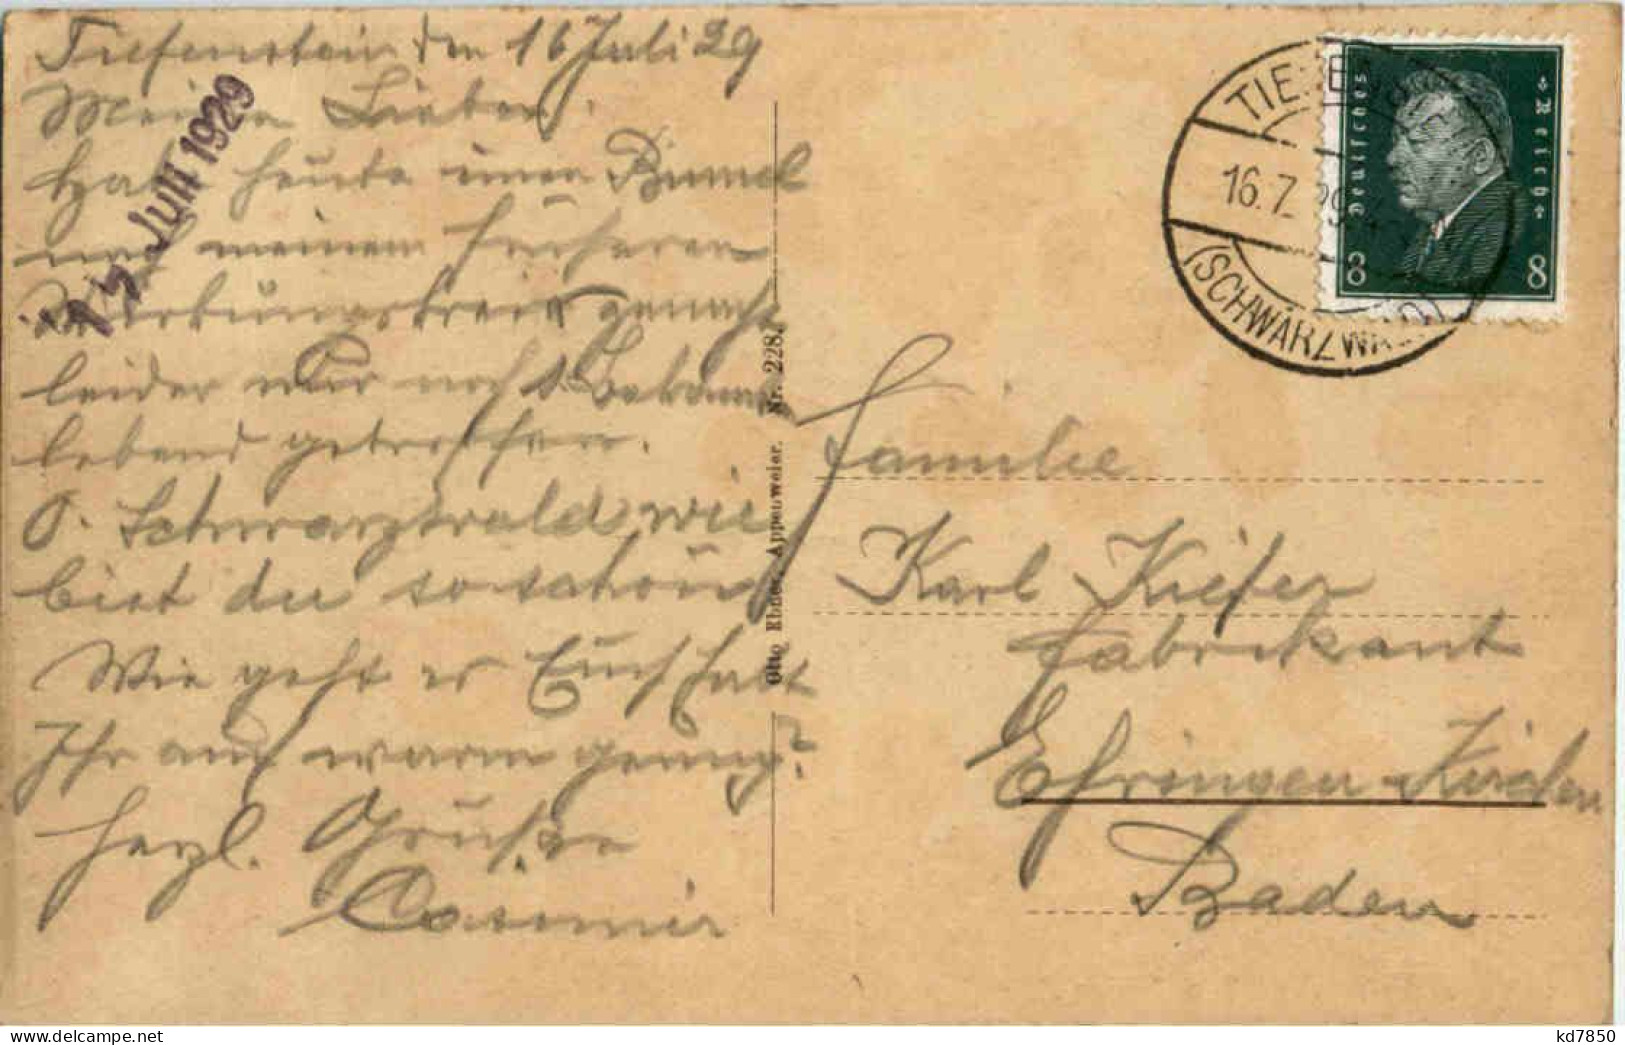 Tiefenstein den 16 Juli 29
Meine Lieben.
Hab heute einen Bummel
nach meinem früheren
Wirkungskreis gemacht
leider nur noch 1. Bekannten
lebend getroffen.
O. Schwarzwald wie
bist du so schön
Wie geht es Euch habt
Ihr auch warm genug?
Herzl. Grüße
Casimir
17. Juli 1929
Otto Ebner, Appenweier. Nr. 228
TIE ENS
16.7. 29
(SCHWARZWALD)
Deutsches Reich
8 8
Familie
Karl Kiefer
Fabrikant
Efringen-Kirchen
Baden
kd7850